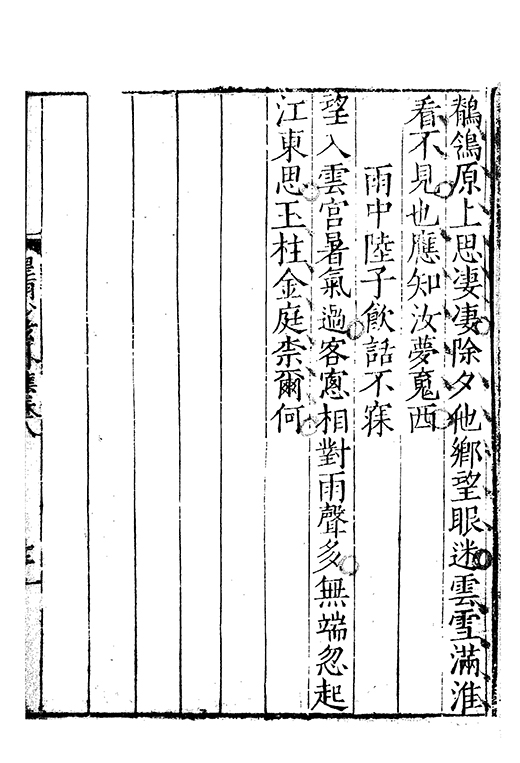 鶺鴒原上思凄凄除夕他鄉望眼迷雲雪滿淮
看不見也應知汝夢䰟西
雨中陸子飲話不寐
望入雲宮暑氣過客窓相對雨聲多無端忽起
江東思玉柱金庭柰爾何
集卷八